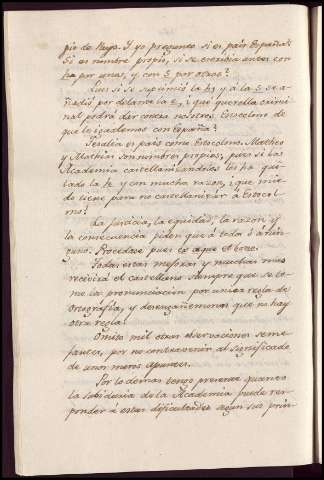 pio de Reyo. Y yo pregunto si es pais España?
Si es nombre propio, si se escribia antes con
h por unos, y con S por otros?
Pues si se suprimió la h y a la S se a-
ñadió por delante la E, ¿que querella crimi-
nal podrá dar contra nosotros Estocolmo de
que igualemos con España?
Tendra es pais como Estocolmo. Matheo
y Mathias son nombres propios; pues si la
Academia castellanizandolos les ha qui-
tado la h y con mucha razon, ¿que mie-
do tiene para no castellanizar á Estocol-
mo?
La justicia, la equidad, la razon y
la consecuencia piden que á todos ó á nin-
guno. Procedase pues es aquel tono.
Todas estas mejoras y muchas mas
recivirá el castellano siempre que se to-
me la pronunciacion por unica regla de
Ortografía, y desengañemonos que no hay
otra regla.
Omito mil otras observaciones seme-
jantes, por no contravenir al significado
de unos meros apuntes.
Por lo demas tengo presente quanto
la sabiduria de la Academia puede res-
ponder á estas dificultades segun sus prin-